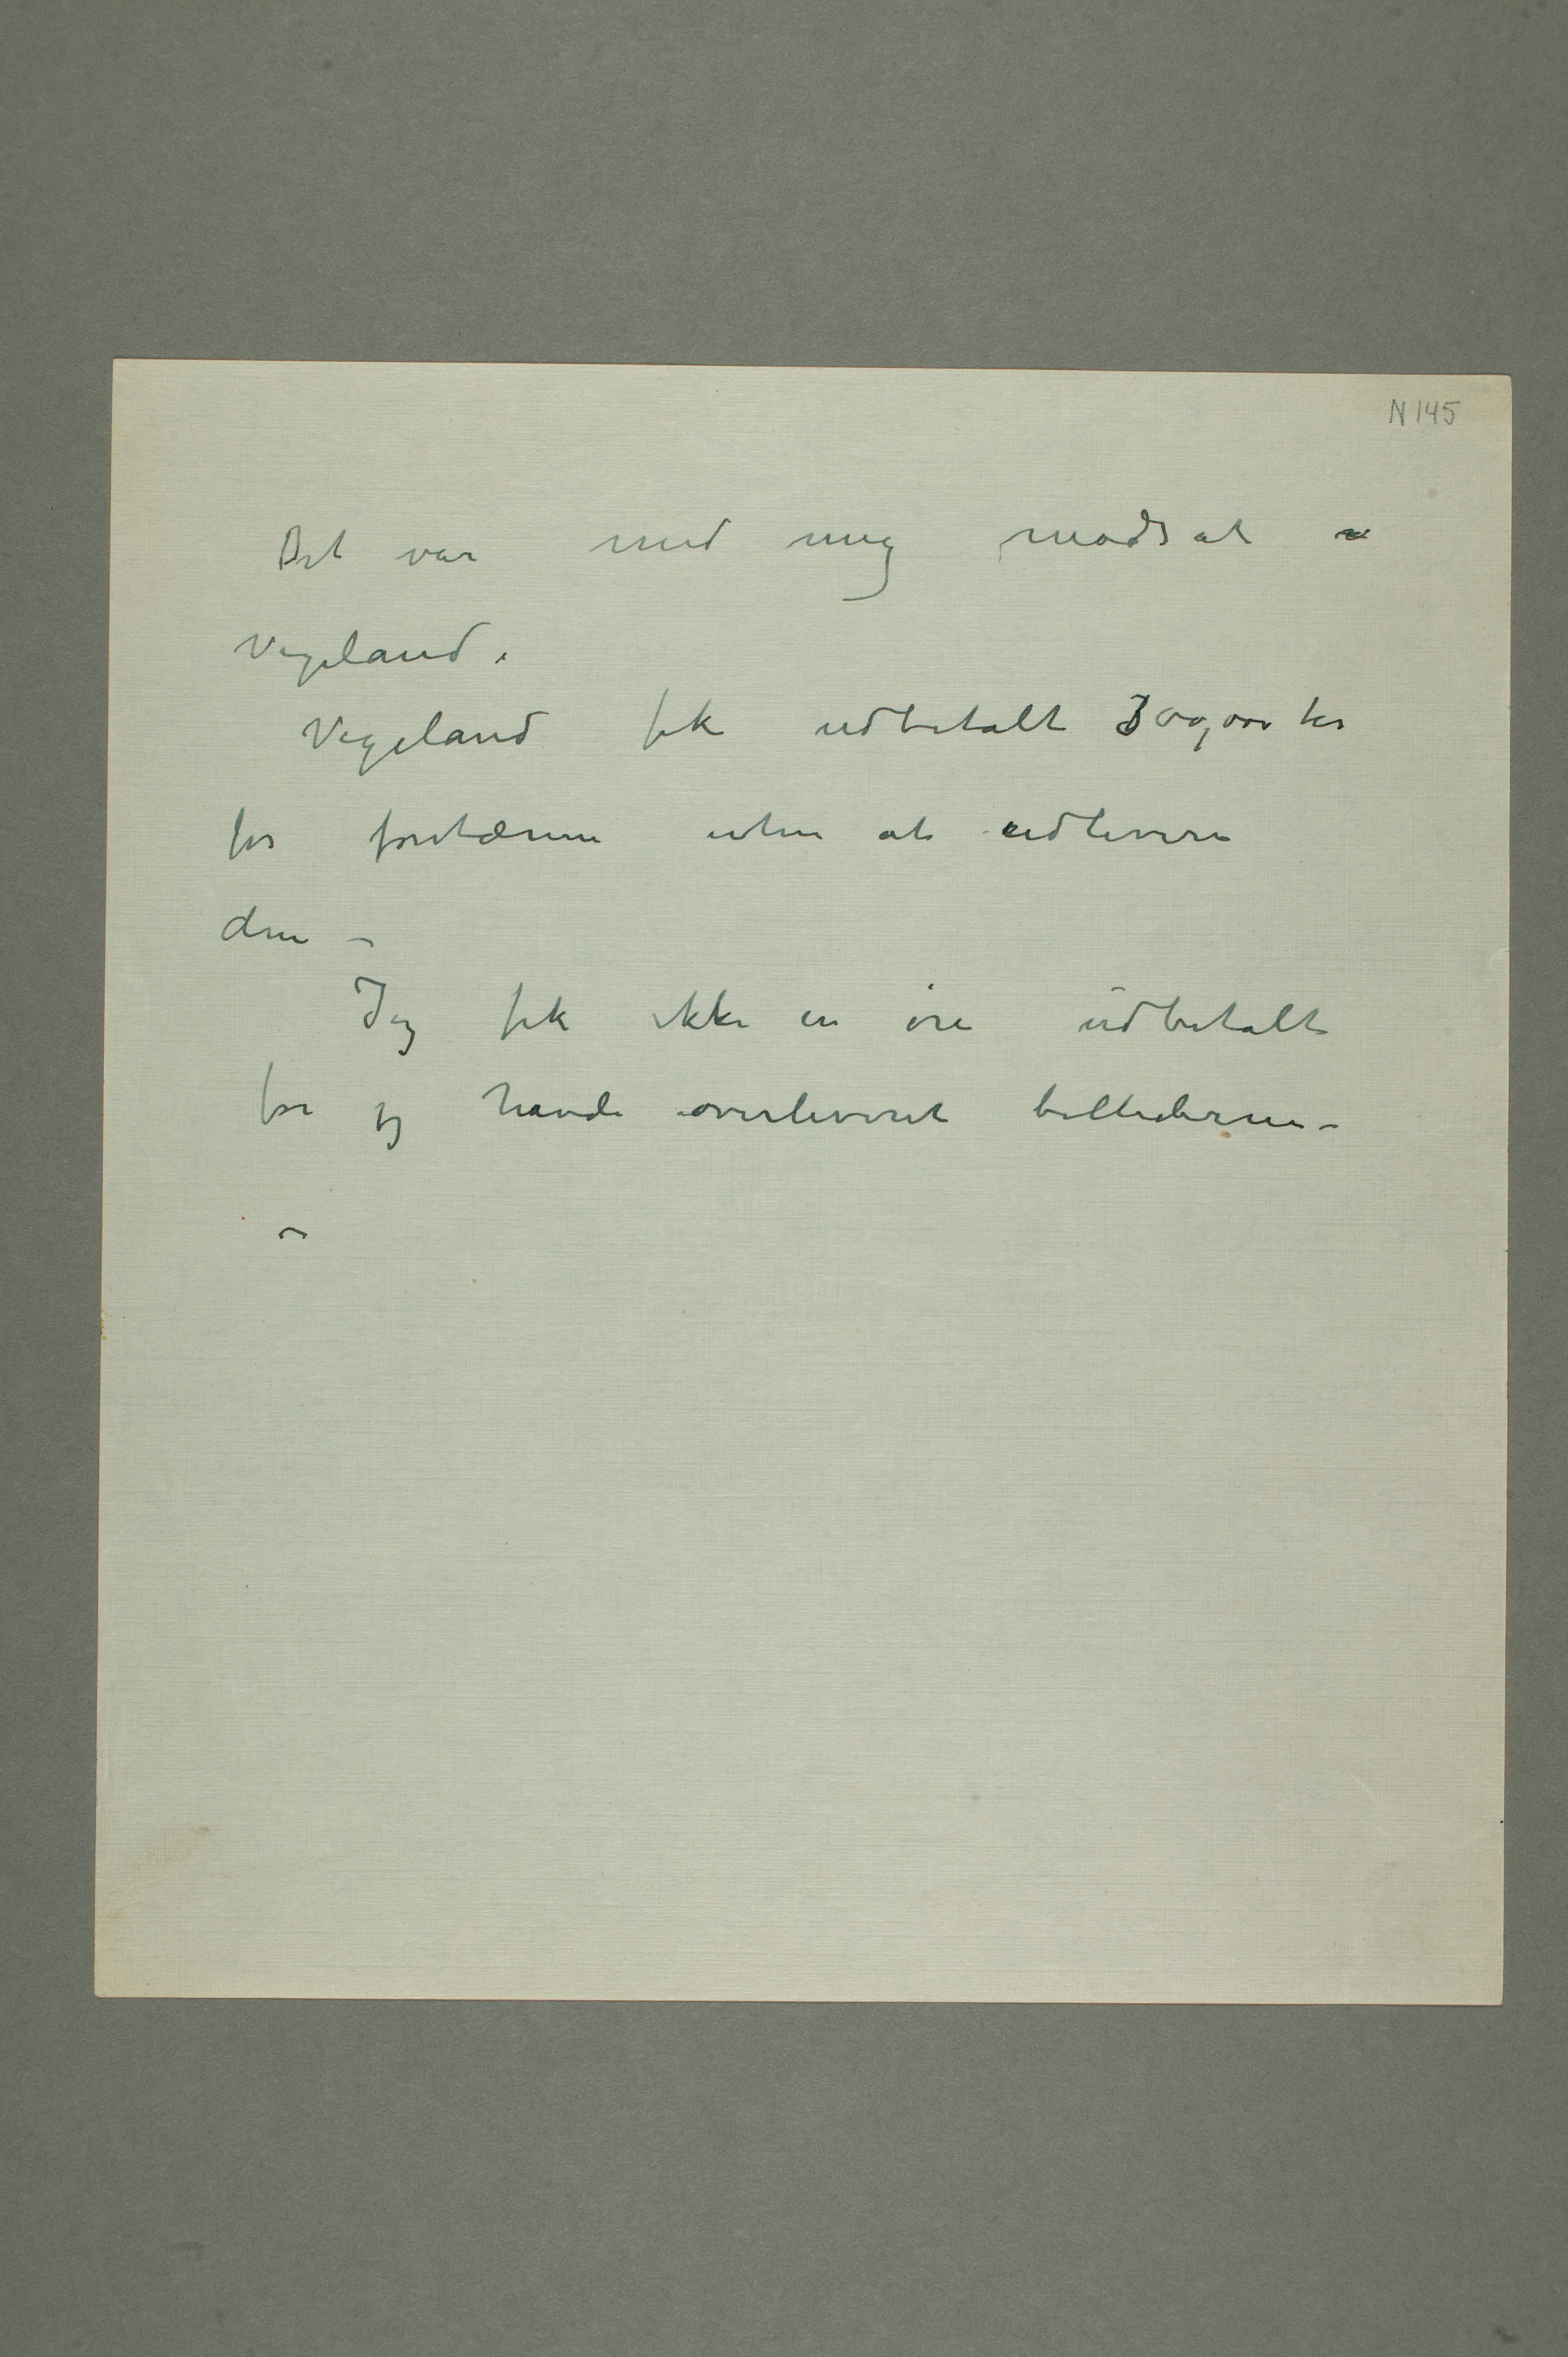 N 145
Det var med mig modsat
Vigeland.
Vigeland fik udbetalt 300,000 kr
for fontænen uten at udlevere
den –
Jeg fik ikke en øre udbetalt
før jeg havde overleveret billederne –
–